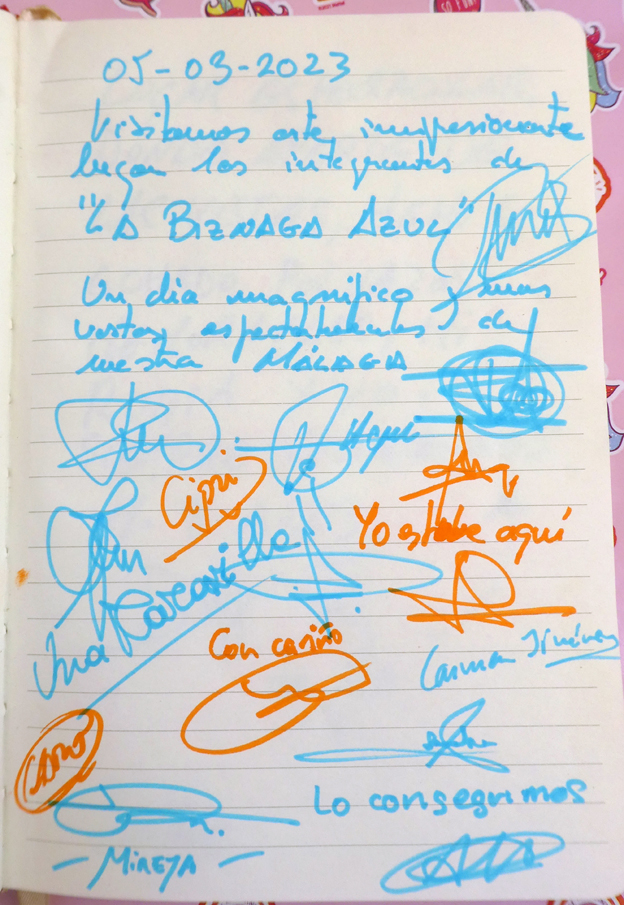 05-03-2023
Visitamos este impresionante
lugar los integrantes de
"LA BIZNAGA AZUL"
Un dia magnifico y unas
vistas espectaculares de
nuestra MÁLAGA
Cipri
Yo estube aquí
Con cariño
Carmen Jiménez
Lo conseguimos
- MIREYA -